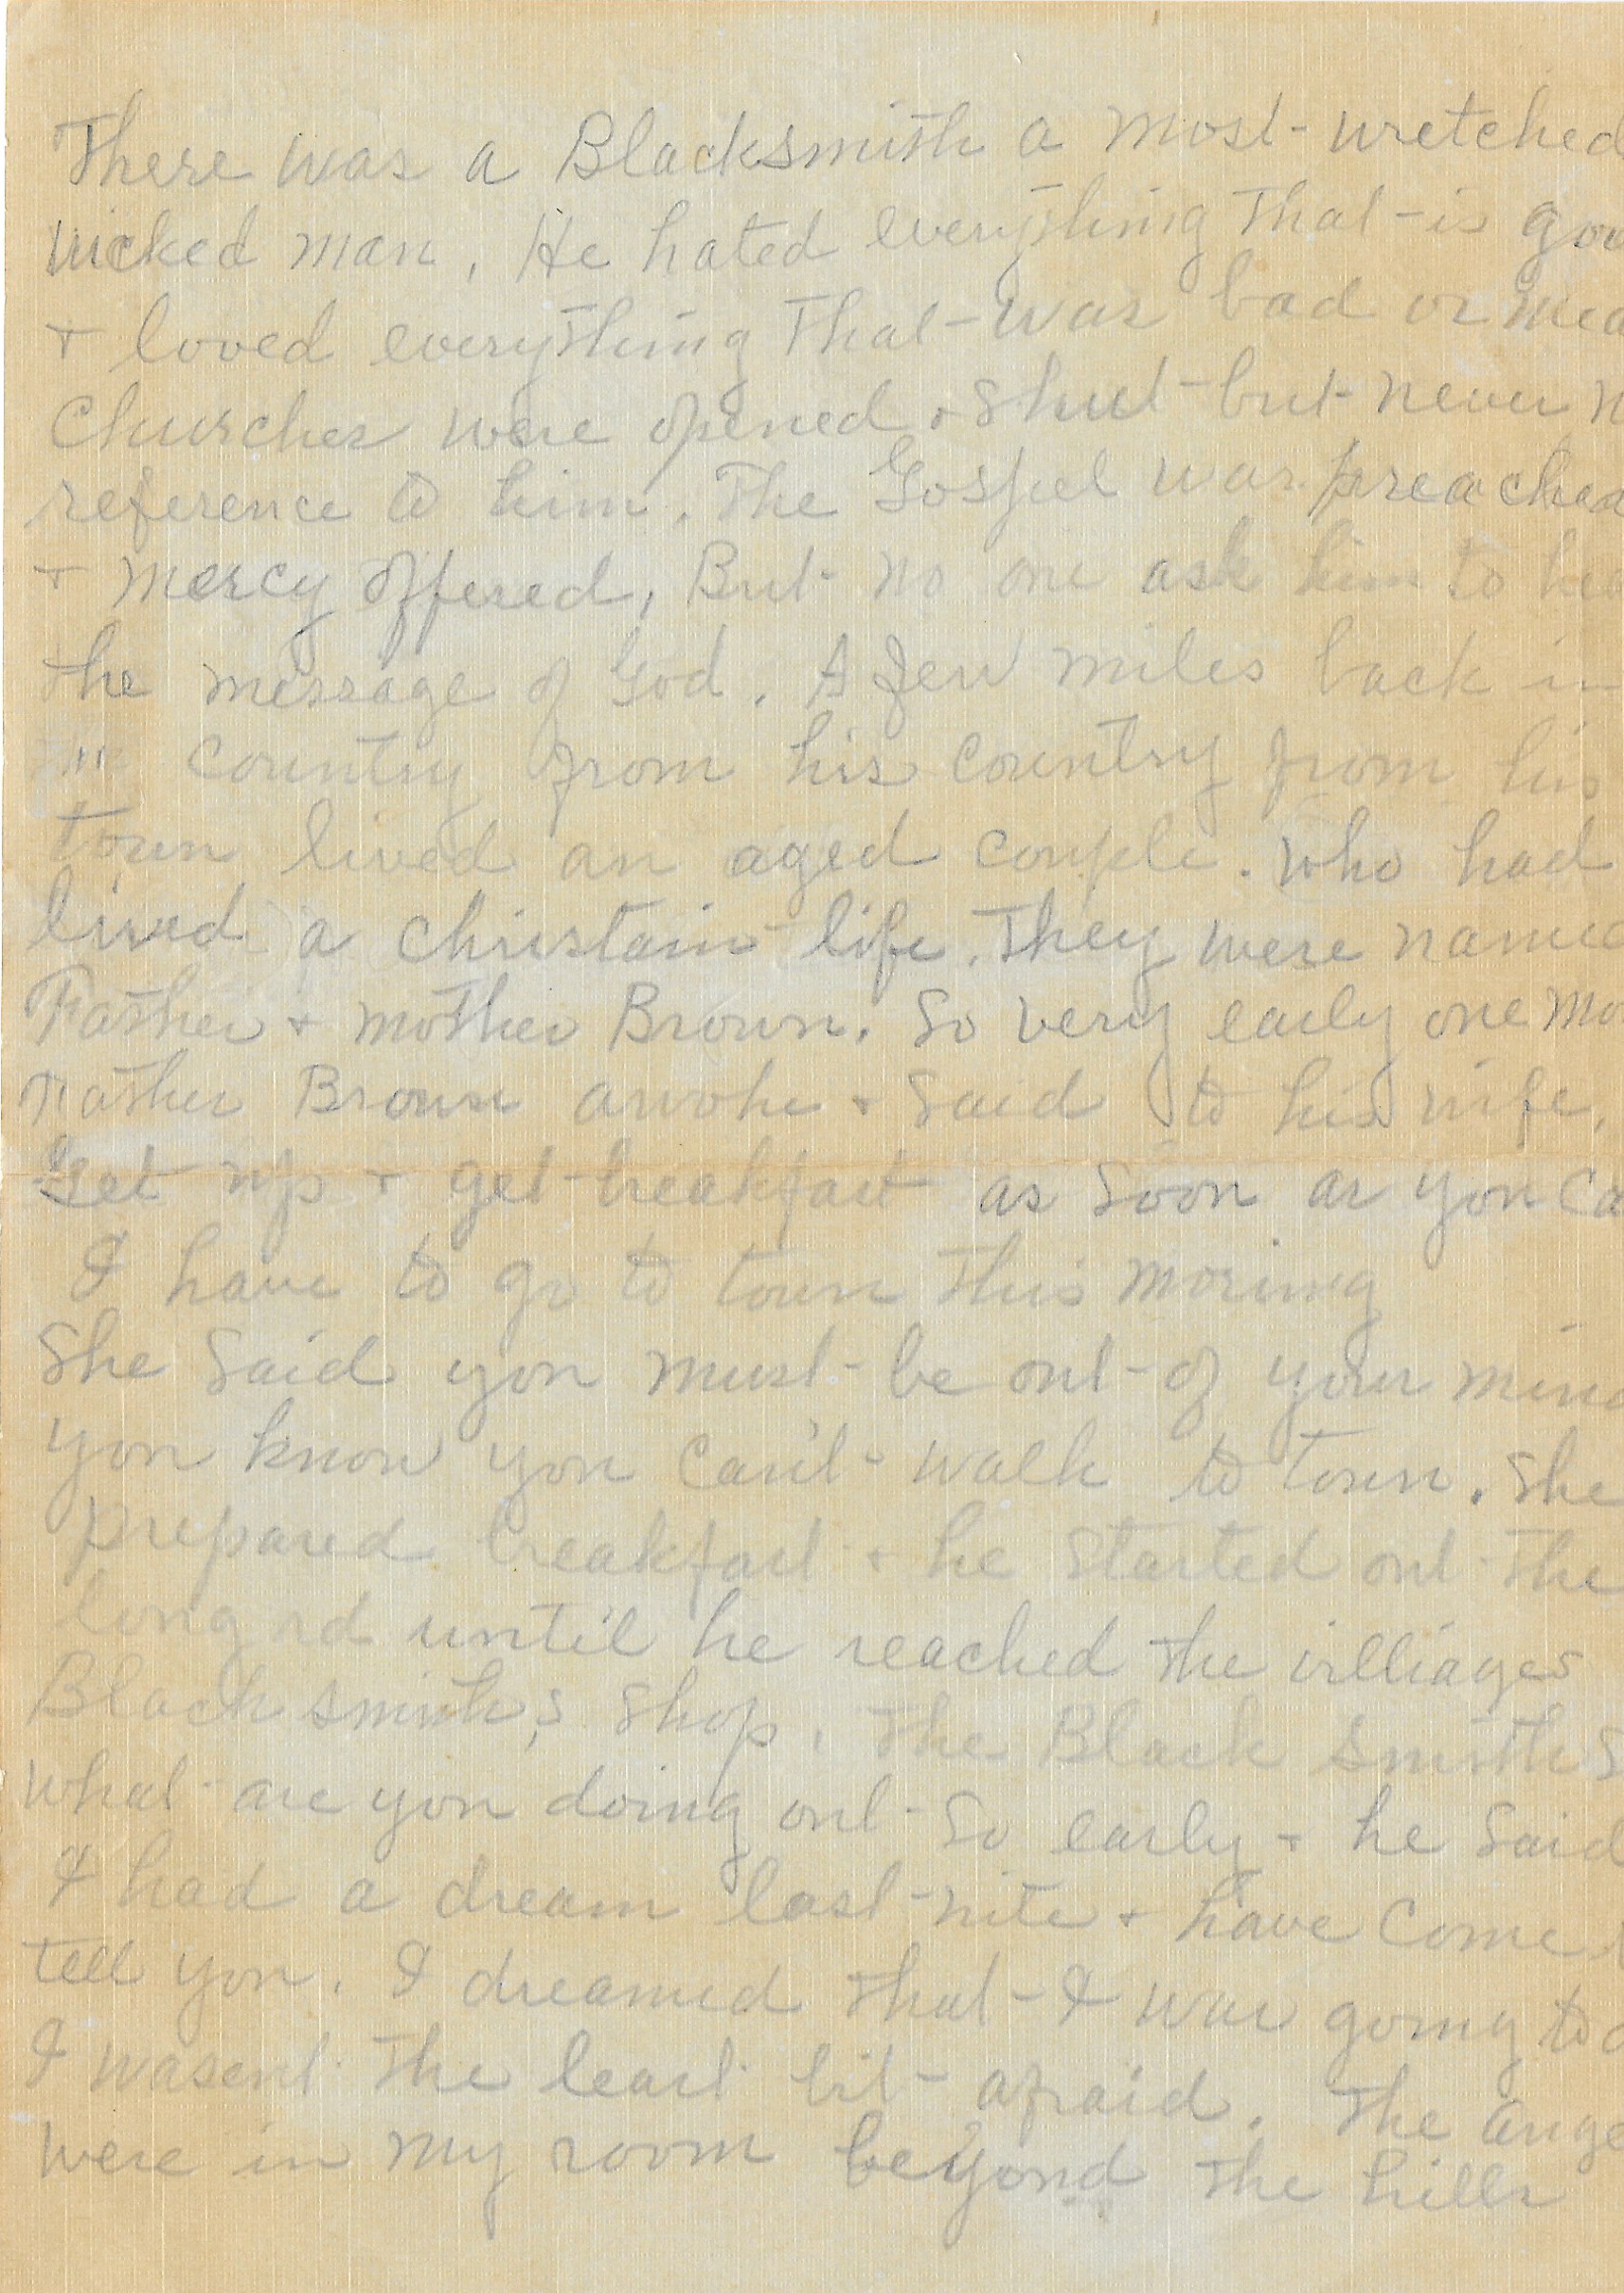 There was a Blacksmith a most wretched
wicked man. He hated everything that is goo
+ loved everything that was bad or mea
Churches were opened + shut but never
reference to him. The Gospel was preached
+ mercy offered, But no one ask him to hea
the message of God. A few miles back in
the country from his country from his
town lived an aged couple. who had
lived a christain life. They were name
Father + mother Brown. So very early one mo
Father Brown awoke + said to his wife,
Get up + get breakfast as soon as you ca
I have to go to town this moring
She said you must be out of your mind
you know you can't walk to town. She
prepared breakfast + he started out the
long rd until he reached the villiages
Black smith,s shop. The Black smith s
what are you doing out so early + he said
I had a dream last nite + have come t
tell you. I dreamed that I was going to d
I wasent the least bit afraid. The ange
were in my room beyond the hills